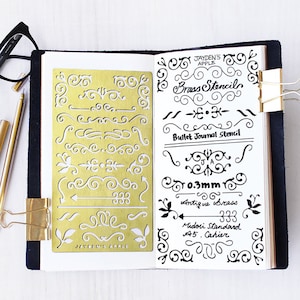 JAYDEN'S APPLE
JAYDEN'S
APPLE
Brass Stencils
Bullet Journal Stencil
0.3mm
Antique Brass
Midori Standard
A5. Cahier